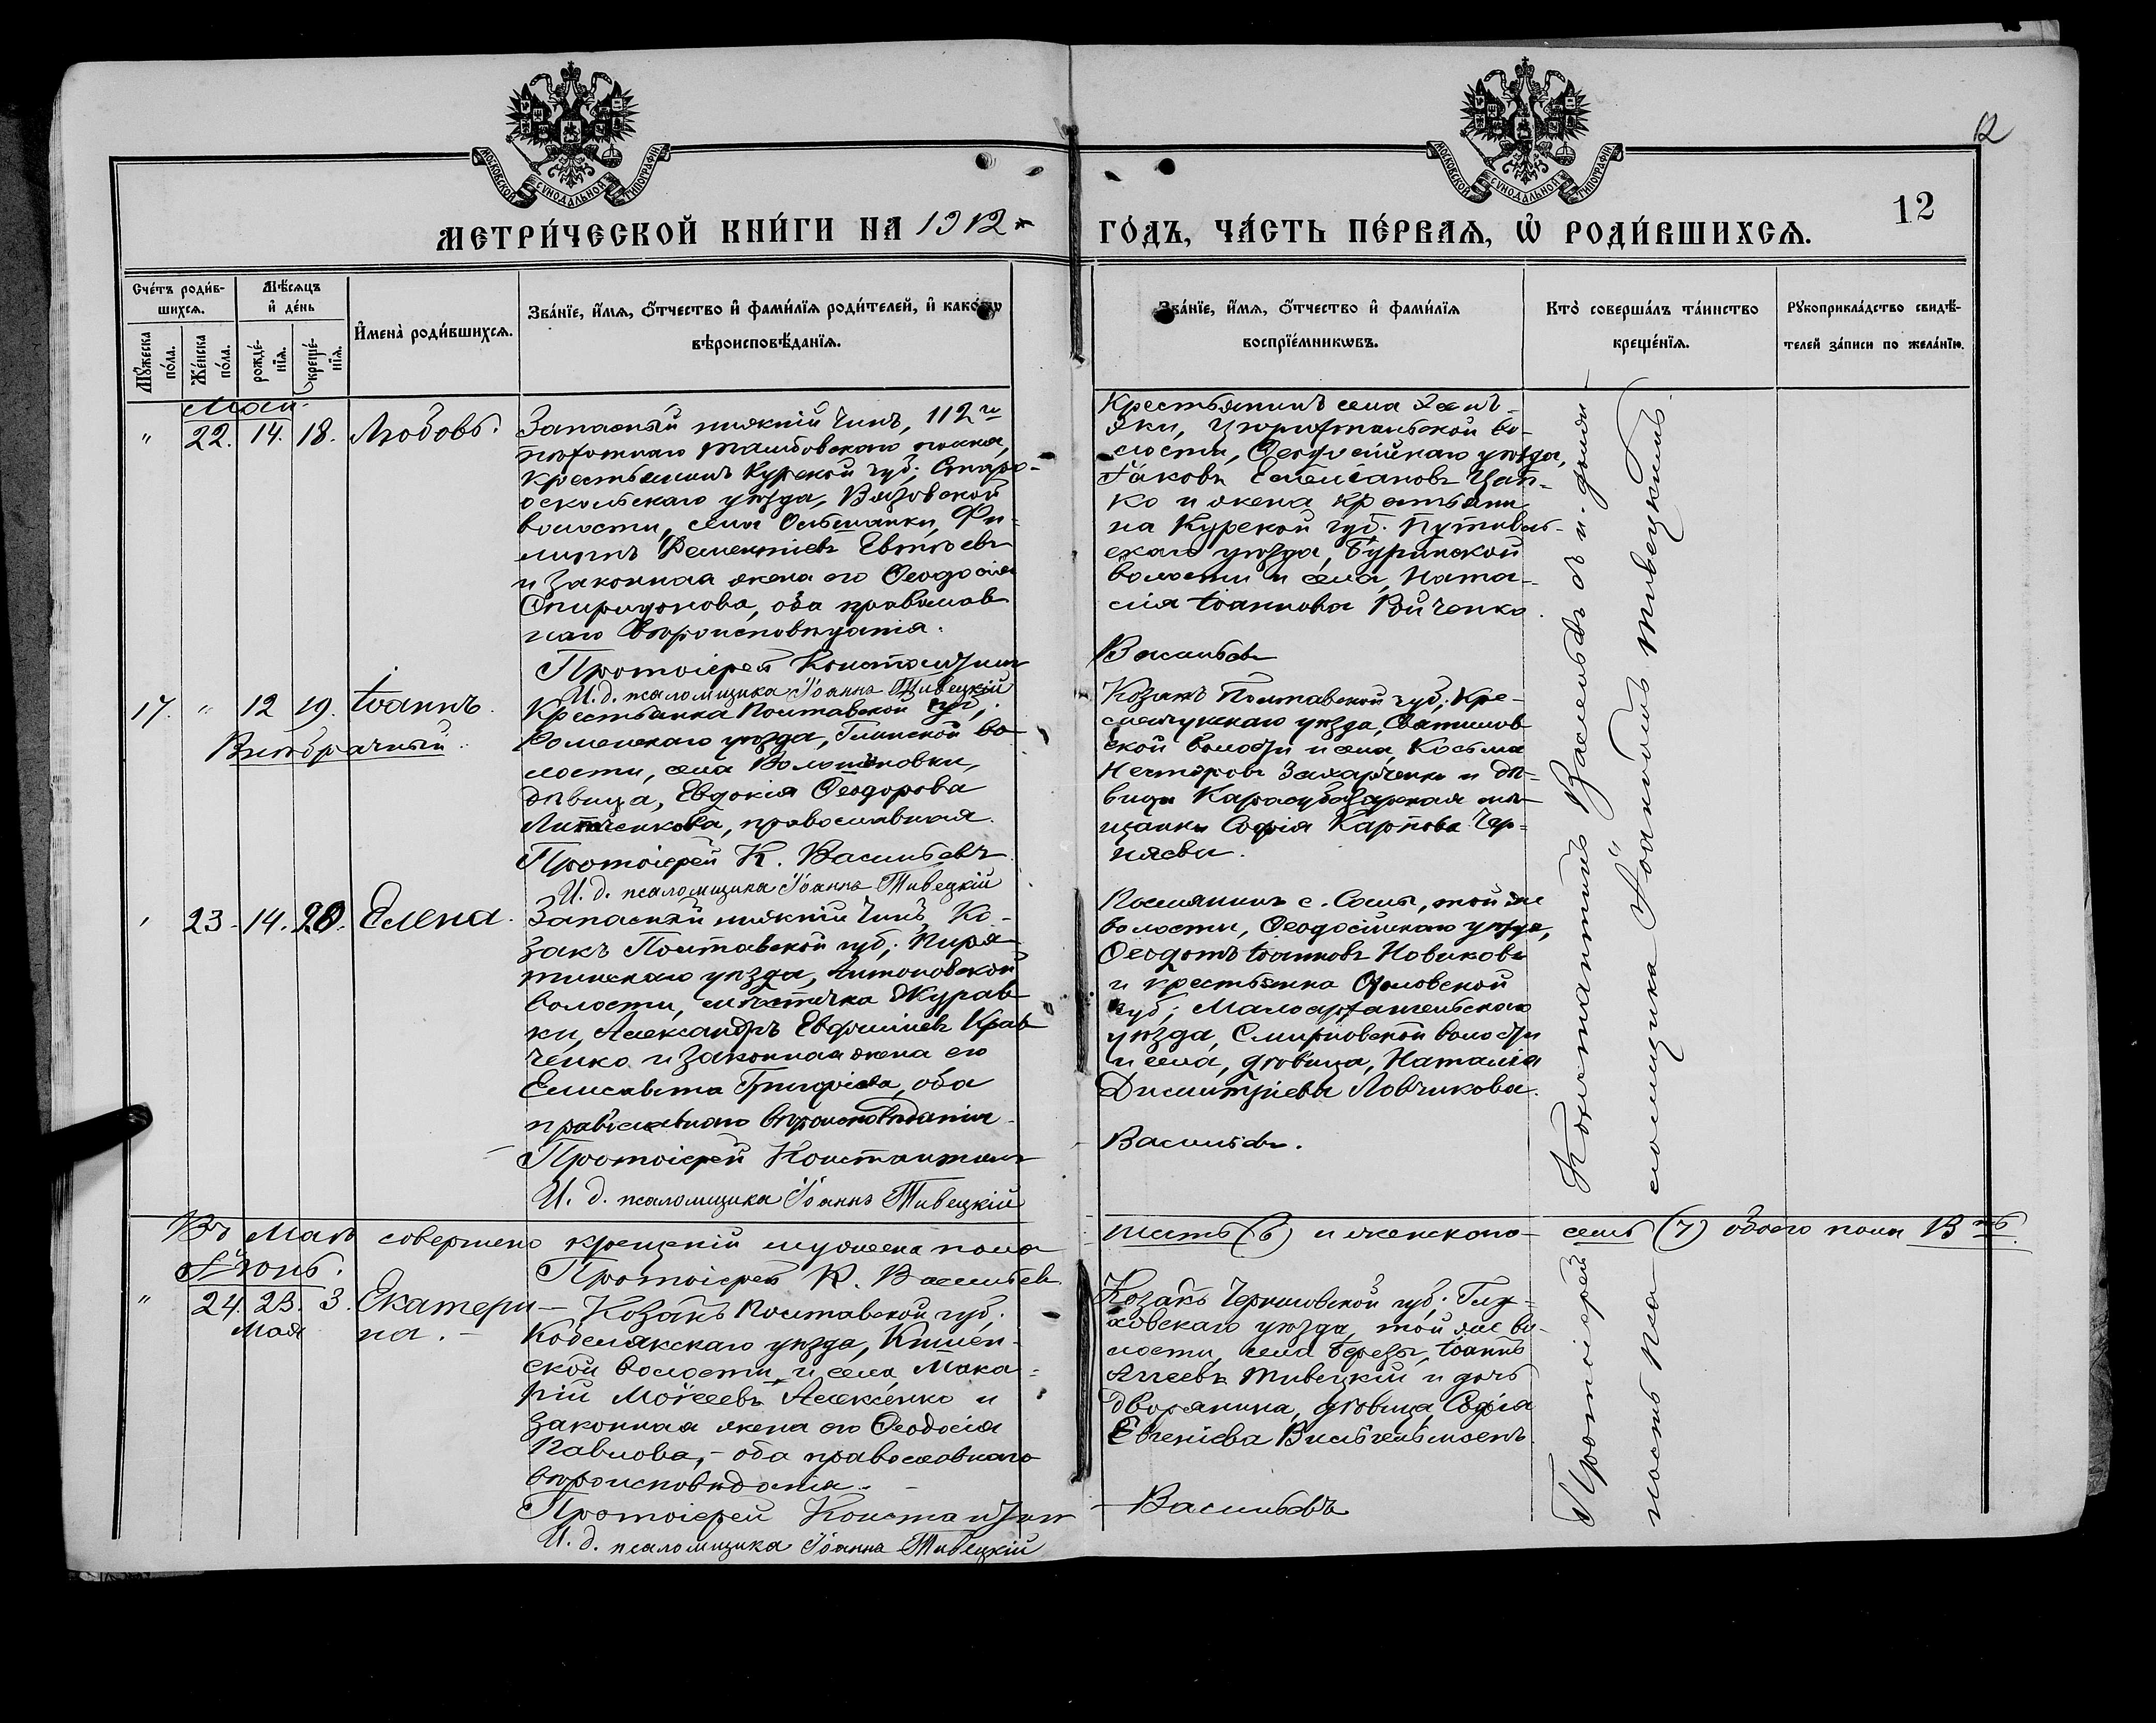 12
МОСКОВСКОЙ СѴНОДАЛЬНОЙ ТИПОГРАФІИ
МОСКОВСКОЙ СѴНОДАЛЬНОЙ ТИПОГРАФІИ
12
МЕТРИ́ЧЕСКОЙ КНИ́ГИ НА 1912
ГО́ДЪ, ЧА́СТЬ ПЕ́РВАЯ, Ѡ҆ РОДИ́ВШИХСЯ.
Сче́тъ роди́вшихся.
Мѣ́сяцъ и҆ де́нь
Мꙋ́жеска по́ла.
Же́нска по́ла.
рожде́нїя.
креще́нїя.
И҆мена̀ роди́вшихся.
Зва́нїе, и҆́мя, ѻ҆́тчество и҆ фами́лїя роди́телей, и҆ како́гѡ
вѣроисповѣ́данїя.
Зва́нїе, и҆́мя, ѻ҆́тчество и҆ фами́лїя
воспрїе́мникѡвъ.
Кто̀ соверша́лъ та́инство
креще́нїя.
Рꙋкоприкла́дство свидѣ́-
телей за́писи по жела́нїю.
Май.
" 22. 14. 18. Любовь.
Запасный нижній чинъ, 112го
пѣхотнаго полка,
крестьянинъ Курской губ., Старо-
оскольскаго уѣзда, Вязовской
волости, села Ольшанки, Фи-
липпъ
и законная жена его Ѳеодосія
Спиридонова, оба православ
наго вѣроисповѣданія.
Протоіерей Константинъ
И. д. псаломщика Іоаннъ Тивецкій
Крестьянинъ села
волости, Ѳеодосійскаго уѣзда,
Іаковъ Емельяновъ Цап-
ко и жена крестьяни
на Курской губ. Путивль-
скаго уѣзда, Бурынской
волости и села, Ната-
лія Іоаннова
Васильевъ
17. " 12 19. Іоаннъ.
Внѣбрачный.
Крестьянка Полтавской губ.,
Роменскаго уѣзда, Глинской во
лости, села
дѣвица, Евдокія Ѳеодорова
православная.
Протоіерей К. Васильевъ
И. д. псаломщика Іоаннъ Тивецкій
Козакъ Полтавской губ., Кре-
менчугскаго уѣзда,
ской волости и села, Косьма
Несторовъ Захарченко и дѣ-
вица Карасубазарская мѣ-
щанка Софія Карпова Чер-
няева.
" 23. 14. 20. Елена.
Запасный нижній чинъ, Ко-
закъ Полтавской губ., Пиря-
тинскаго уѣзда, Антоновской
волости, мѣстечка Журав
ки, Александръ Евфиміевъ Крав
ченко и законная жена его
Елисавета Григоріева, оба
православнаго вѣроисповѣданія.
Протоіерей Константинъ
И. д. псаломщика Іоаннъ Тивецкій
Поселянинъ с. Салы, той же
волости, Ѳеодосійскаго уѣзда,
Ѳеодотъ Іоанновъ Новиковъ
и крестьянка Орловской
губ., Малоархангельскаго
уѣзда, Смирновской волости
и села, дѣвица, Наталія
Димитріева Ловчикова.
Васильевъ.
Въ Маѣ совершено крещеній мужеска пола шесть (6) и женскаго – семь (7) обоего пола 13ть.
Протоіерей К. Васильевъ
Іюнь.
" 24. 23. 3. Екатери-
Мая на. –
Козакъ Полтавской губ.
Кобелякскаго уѣзда, Кишен-
ской волости и села, Мака-
рій Моѵсеевъ Алексѣнко и
законная жена его Ѳеодосія
Павлова, – оба православнаго
вѣроисповѣданія.
Протоіерей Константинъ
И. д. псаломщика Іоаннъ Тивецкій
Козакъ Черниговской губ., Глу-
ховскаго уѣзда, той же во-
лости, села Береза, Іоаннъ
Аггеевъ Тивецкій и дочь
дворянина, дѣвица, Софія
Евгеніева Вильгельмсенъ.
Васильевъ
Протоіерей Константинъ Васильевъ съ и. долж-
ность псаломщика Іоанномъ Тивецкимъ.